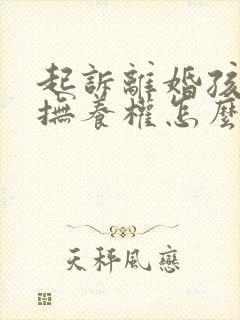 起訴離婚孩
撫養權怎麼
天秤風戀